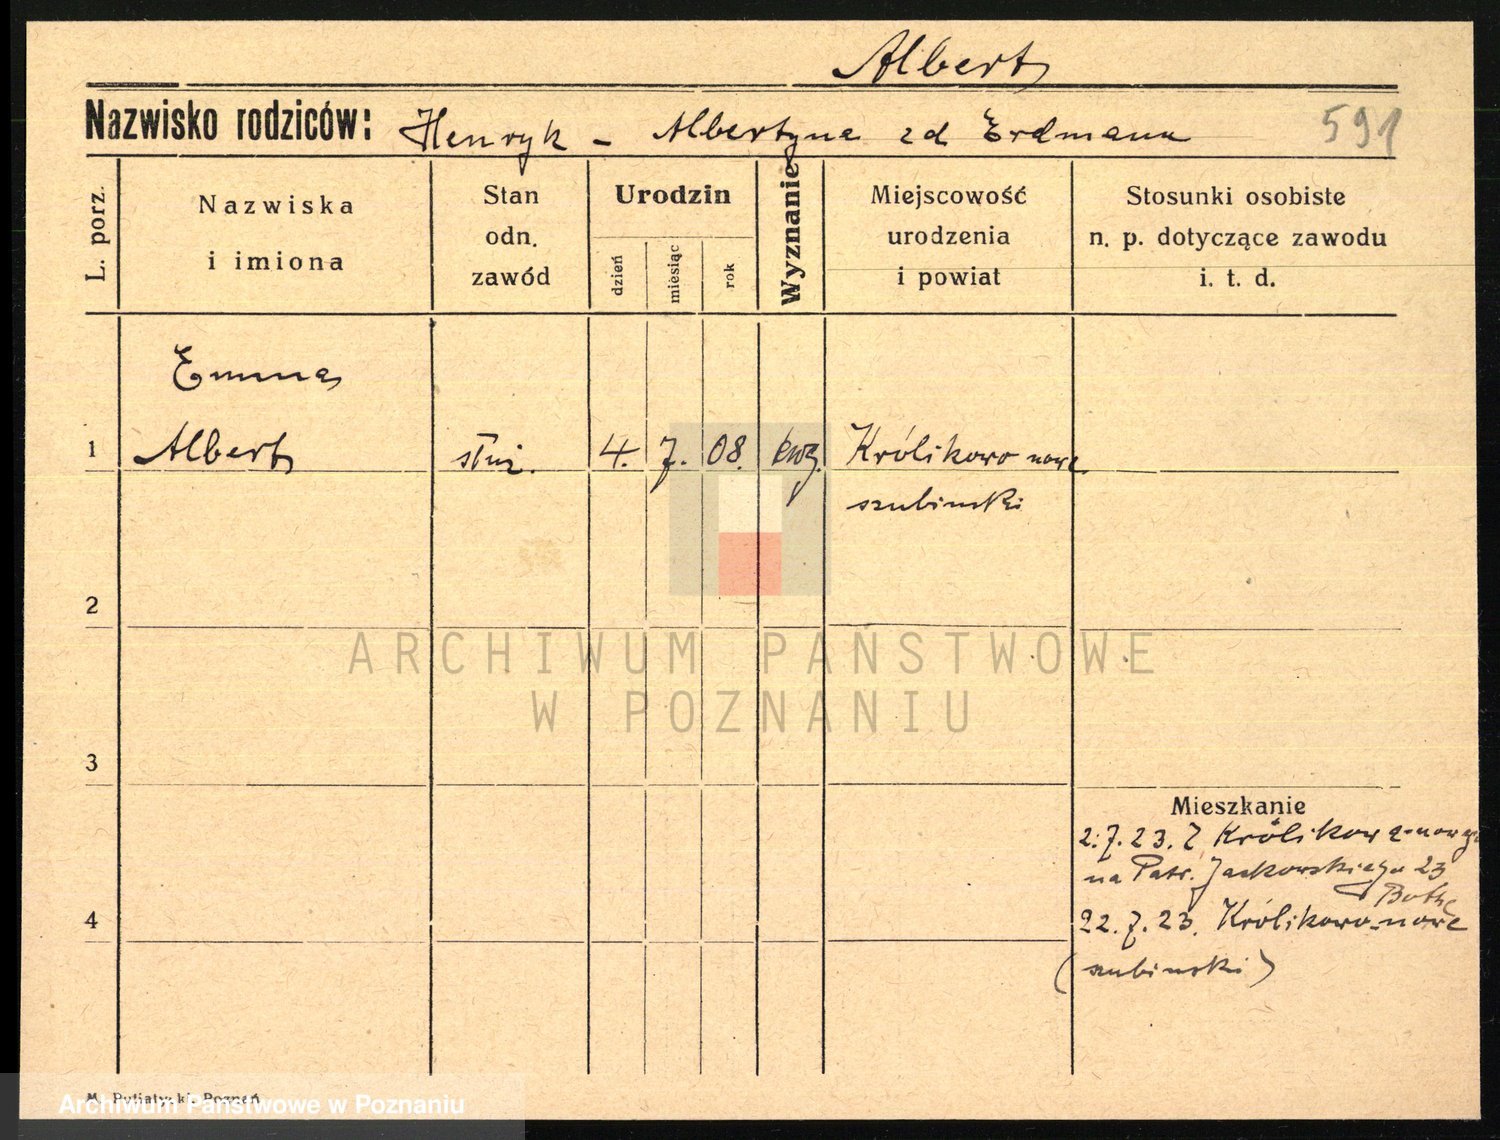 Albert
Nazwisko rodziców: Henryk - Albertyna zd Erdmann
591
L. porz.
Nazwiska
i imiona
Stan
odn.
zawód
Urodzin
dzień
miesiąc
rok
Wyznanie
Miejscowość
urodzenia
i powiat
Stosunki osobiste
n. p. dotyczące zawodu
i. t. d.
Emma
1 Albert służ. 4. 7. 08. ewg. Królikowo nowe
szubiński
2
ARCHIWUM PAŃSTWOWE
W POZNANIU
3
Mieszkanie
2.7.23. Z Królikowa-nowego
na Patr. Jackowskiego 23
Bothe
4
22.7.23. Królikowo-nowe
(szubiński)
M. Putiatycki, Poznań
Archiwum Państwowe w Poznaniu